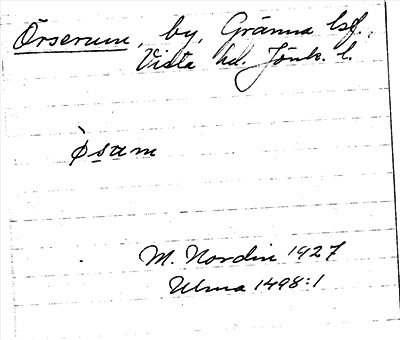 Örserum, by, Gränna lsf.,
Vista hd. Jönk. l.
M. Nordin 1927
Ulma 1498:1